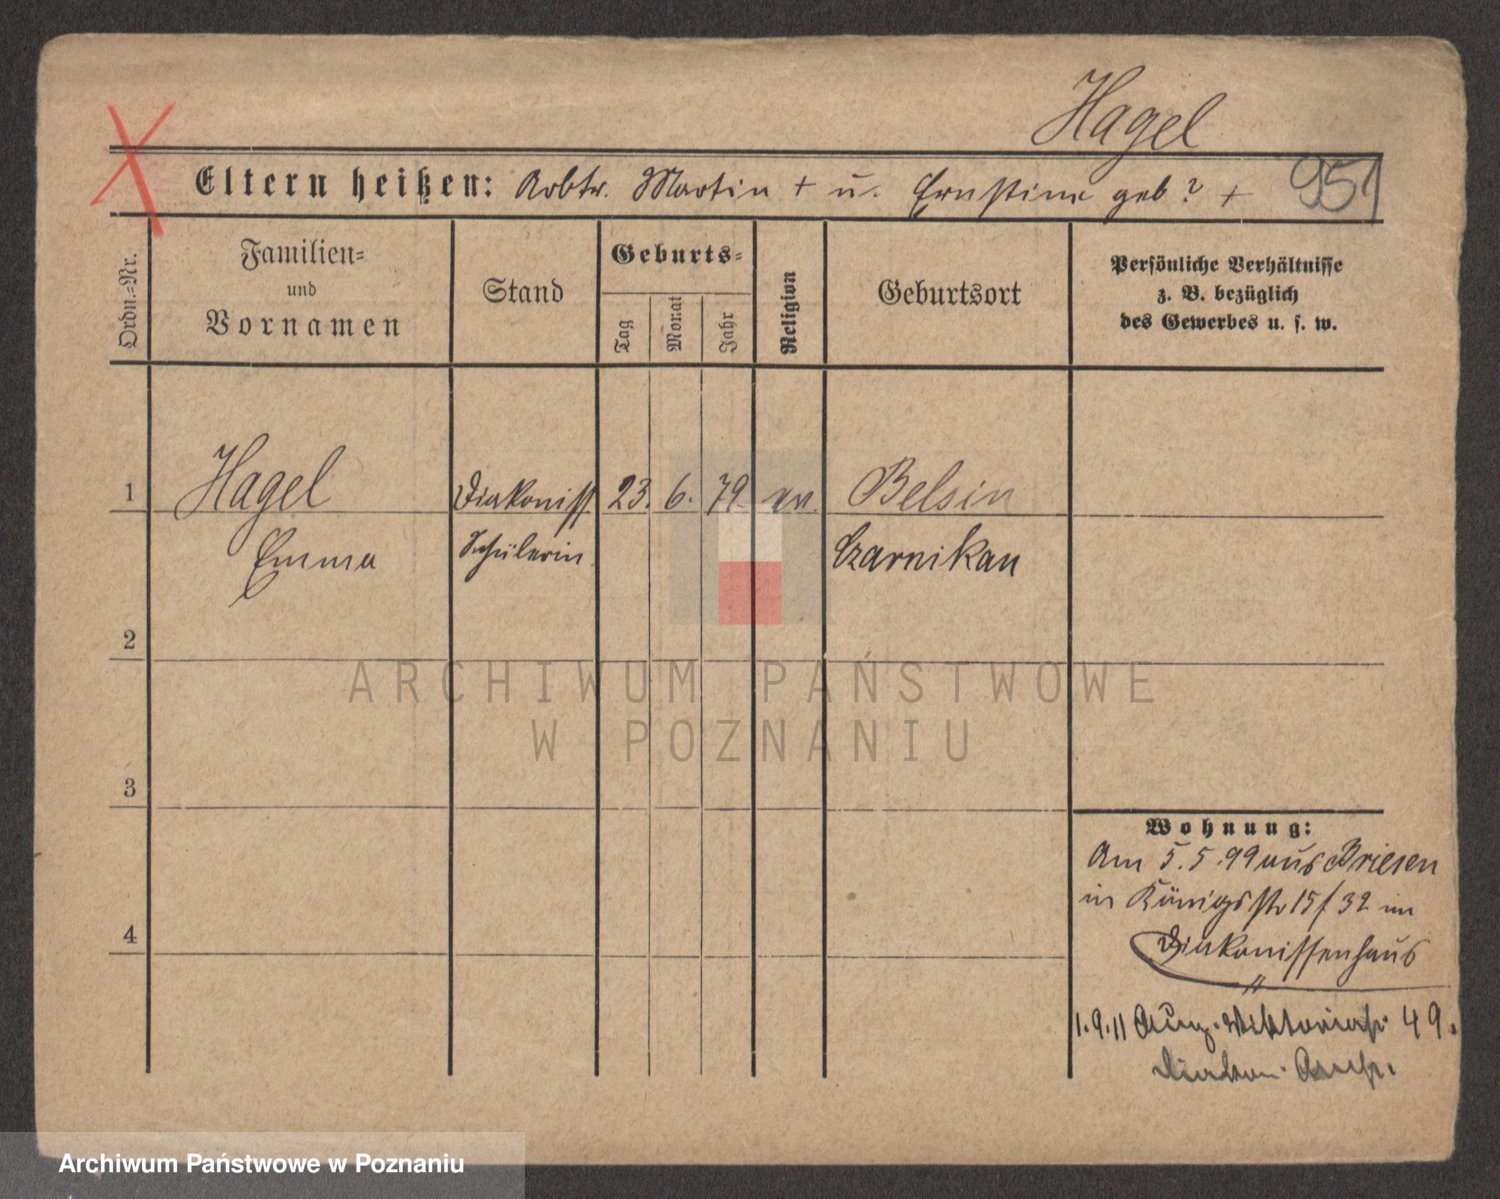 Hagel
951
Eltern heißen: Arbtr. Martin + u. Ernstine geb? +
Ordn.=Nr.
Familien=
und
Vornamen
Stand
Geburts=
Tag
Monat
Jahr
Religion
Geburtsort
Persönliche Verhältnisse
z. B. bezüglich
des Gewerbes u. s. w.
1 Hagel Diakoniss. 23. 6. 79. ev. Belsin
Emma Schülerin Czarnikau
2
3
4
Wohnung:
Am 5.5.99 aus Briesen
in Königsstr 15/32 im
Diakonissenhaus
1.9.11 Aug. Viktoriastr 49.
Diakon. Anst.
ARCHIWUM PAŃSTWOWE
W POZNANIU
Archiwum Państwowe w Poznaniu